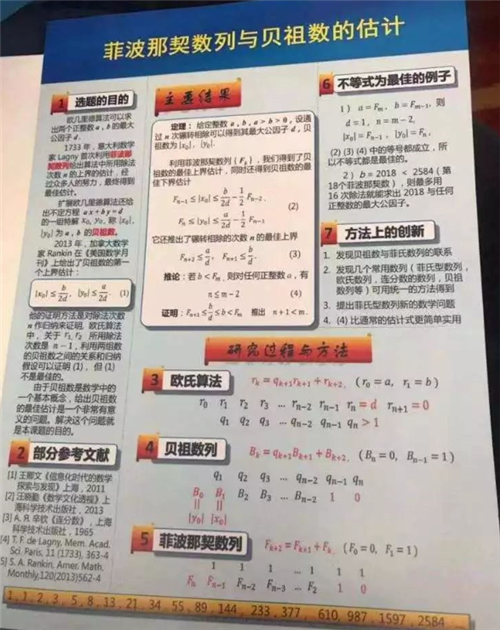 菲波那契数列与贝祖数的估计
1 选题的目的
欧几里德算法可以求
出两个正整数 a, b 的最大
公因子 d。
1733 年，意大利数学
家 Lagny 首次利用菲波那
契数列给出算法中所用除法
次数 n 的上界的估计，经
过众多人的努力，最终得到
最佳估计。
扩展欧几里德算法还给
出不定方程 ax+by=d
的一组特解 x₀, y₀，称 |x₀|,
|y₀| 为 a, b 的贝祖数。
2013 年，加拿大数学
家 Rankin 在《美国数学月
刊》上给出了贝祖数的第一
个上界估计：
|x₀| ≤ b/2d, |y₀| ≤ a/2d (1)
他的证明方法是对除法次数
n 作归纳来证明。欧氏算法
中，关于 r₁, r₂ 所用除法
次数是 n − 1，利用两组数
的贝祖数之间的关系和归纳
假设可以证明 (1)，但 (1)
不是最佳的。
由于贝祖数是数学中的
一个基本概念，给出贝祖数
的最佳估计是一个非常有意
义的问题。解决这个问题就
是本课题的目的。
2 部分参考文献
[1] 王卿文《信息化时代的数学
探索与发现》上海，2011
[2] 汪晓勤《数学文化透视》上
海科学技术出版社，2013
[3] А. Я. 辛钦《连分数》，上海
科学技术出版社，1965
[4] T. F. de Lagny, Mem. Acad.
Sci. Paris, 11 (1733), 363-4
[5] S. A. Rankin, Amer. Math.
Monthly,120(2013)562-4
主要结果
定理：给定整数 a, b, a > b > 0，设通
过 n 次辗转相除可以得到其最大公因子 d，贝
祖数为 |x₀|, |y₀|.
利用菲波那契数列 {Fₖ}，我们得到了贝
祖数的最佳上界估计，同时还得到贝祖数的最
佳下界估计
Fₙ₋₁ ≤ |x₀| ≤ b/2d − 1/2 Fₙ₋₂,
(2)
Fₙ ≤ |y₀| ≤ a/2d − 1/2 Fₙ₋₁.
它还推出了辗转相除的次数 n 的最佳上界
Fₙ₊₂ ≤ a/d, Fₙ₊₁ ≤ b/d. (3)
推论：若 b < Fₘ，则对任何正整数 a，有
n ≤ m − 2 (4)
证明：Fₙ₊₁ ≤ b/d ≤ b < Fₘ 推出 n + 1 < m.
6 不等式为最佳的例子
1) a = Fₘ, b = Fₘ₋₁, 则
d = 1, n = m − 2,
|x₀| = Fₙ₋₁, |y₀| = Fₙ.
(2) (3) (4) 中的等号都成立，所
以不等式都是最佳的。
2) b = 2018 < 2584 (第
18个菲波那契数)，则最多用
16 次除法就能求出 2018 与任何
正整数的最大公因子。
7 方法上的创新
1. 发现贝祖数与菲氏数列的联系
2. 发现几个常用数列（菲氏型数列，
欧氏数列，连分数的数列，贝祖
数列等）可用统一的方法得到
3. 提出菲氏型数列新的数学问题
4. (4) 比通常的估计式更简单实用
研究过程与方法
3 欧氏算法 rₖ = qₖ₊₁rₖ₊₁ + rₖ₊₂, (r₀ = a, r₁ = b)
r₀ r₁ r₂ r₃ ... rₙ₋₂ rₙ₋₁ rₙ = d rₙ₊₁ = 0
q₁ q₂ q₃ ... qₙ₋₂ qₙ₋₁ qₙ > 1
4 贝祖数列 Bₖ = qₖ₊₁Bₖ₊₁ + Bₖ₊₂, (Bₙ = 0, Bₙ₋₁ = 1)
q₁ q₂ q₃ ... qₙ₋₂ qₙ₋₁ qₙ
B₀ B₁ B₂ B₃ ... Bₙ₋₂ 1 0
|| ||
|y₀| |x₀|
5 菲波那契数列 Fₖ₊₂ = Fₖ₊₁ + Fₖ, (F₀ = 0, F₁ = 1)
1 1 1 ... 1 1 1
Fₙ Fₙ₋₁ Fₙ₋₂ Fₙ₋₃ ... F₂ 1 0
1, 1, 2, 3, 5, 8, 13, 21, 34, 55, 89, 144, 233, 377, 610, 987, 1597, 2584